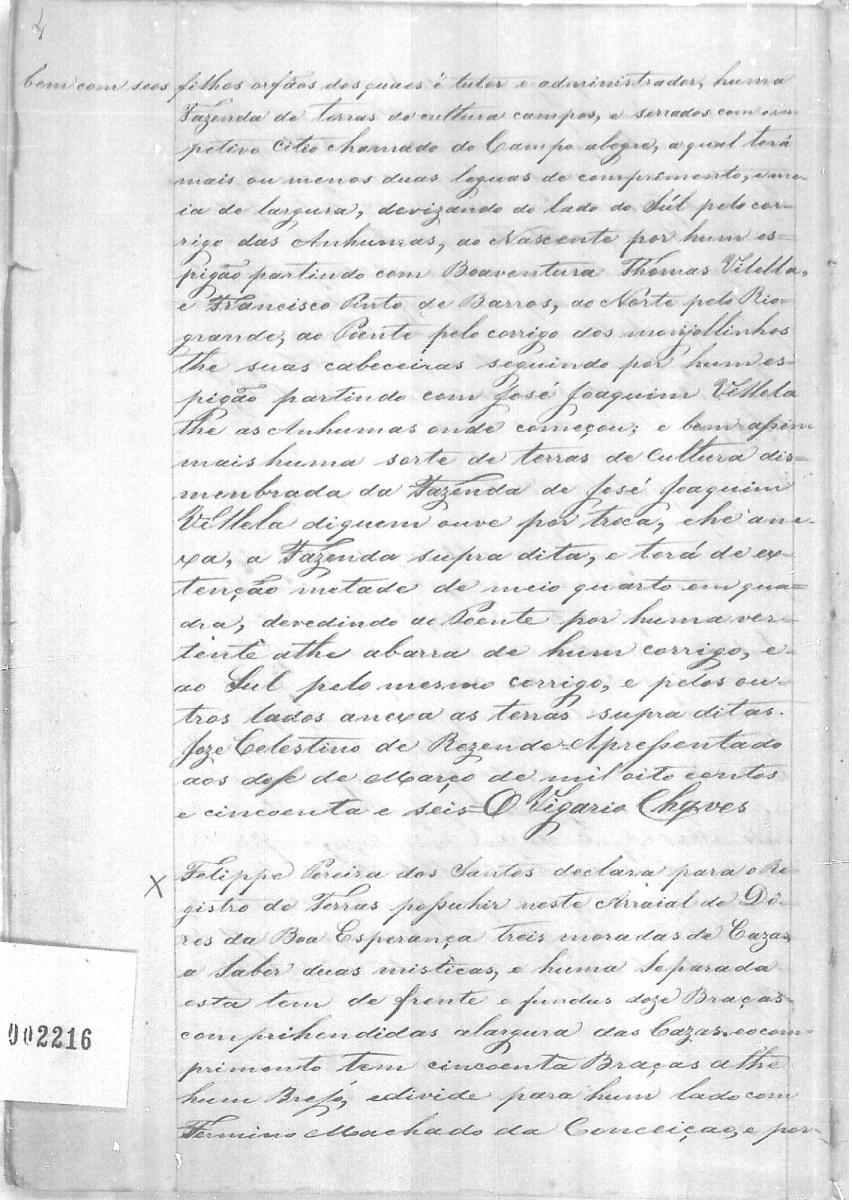 4
bem com seos filhos orfãos dos quaes é tutor e administrador, huma
Fazenda de terras de cultura campos, e serrados com o res-
petivo Citio chamado do Campo alegre, a qual terá
mais ou menos duas leguas de comprimento, e me-
ia de largura, devizando do lado do Sul pelo cor-
rigo das Anhumas, ao Nascente por hum es=
pigão partindo com Boaventura Thomas Vilella,
e Francisco Pinto de Barros, ao Norte pelo Rio-
grande, ao Poente pelo corrigo dos monjollinhos
the suas cabeceiras seguindo por hum es-
pigão partindo com José Joaquim Villela
the as Anhumas onde começou; e bem assim
mais huma sorte de terras de cultura dis=
menbrada da Fazenda de José Joaquim
Villela diquem ouve por troca, e he ane-
xa, a Fazenda supra dita, e terá de ex-
tenção metade de meio quarto em qua=
dra, devedindo ao Poente por huma ver-
tente athe abarra de hum corrigo, e-
ao Sul pelo mesmo corrigo, e pelos ou-
tros lados anexa as terras supra ditas.
Joze Celestino de Rezende-Apressentado
aos dose de Março de mil oito centos
e cincoenta e seis-O Vigario Chaves
X Felippe Pereira dos Santos declara para o Re-
gistro de Terras possuhir neste Arraial de Dô-
res da Boa Esperança treis moradas de Cazas,
a Saber duas misticas, e huma Separada
esta tem de frente e fundus doze Braças-
comprihendidas alargura das Cazas, eocom-
primento tem cincoenta Braças athe
hum Brejó, edivide para hum lado com
Fermino Machado da Conceiçao, e por-
002216